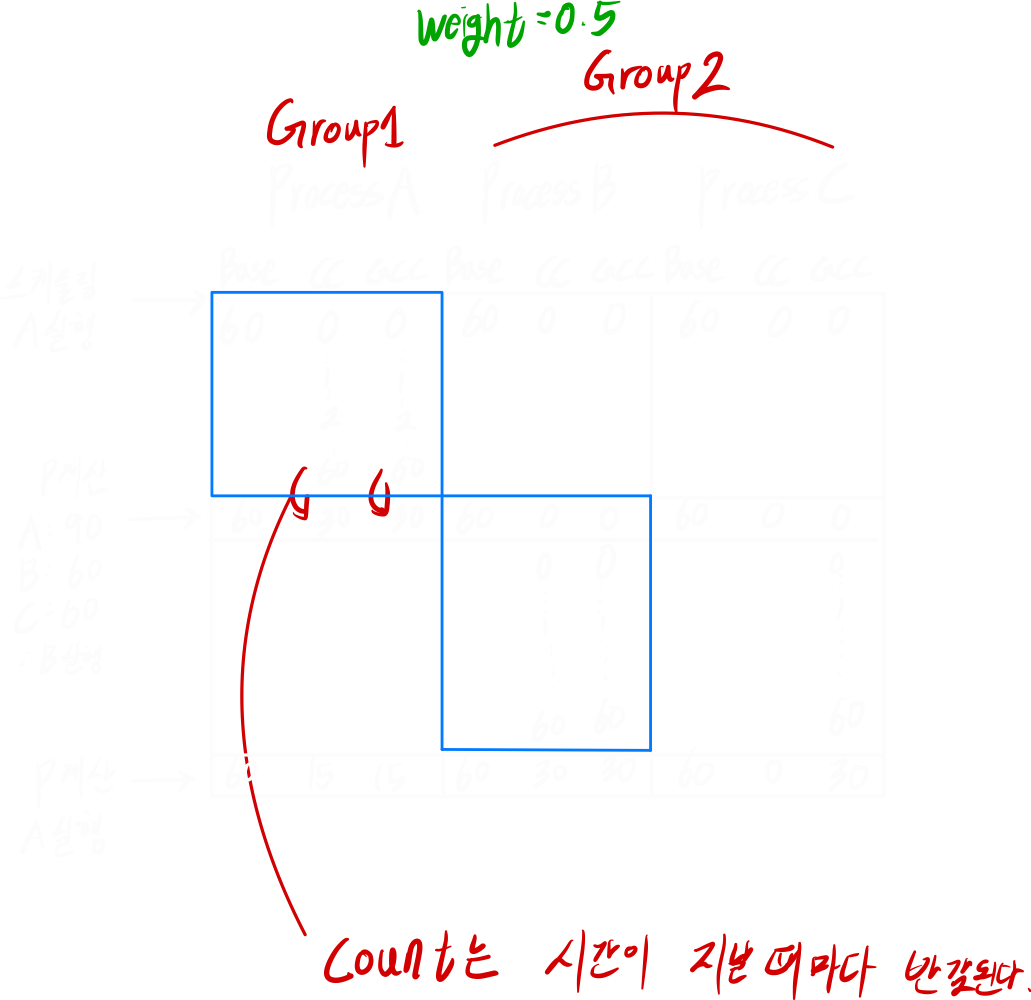 weight=0.5
Group1 Group2
Process A Process B Process C
Base CC GCC Base CC GCC Base CC GCC
스케줄링
A 실행 60 0 0 60 0 0 60 0 0
1 1
2 2
60 60
P계산
A · 90 60 30 30 60 0 0 60 0 0
B 60 0 0 0
C · 60 1 1 1
· B실행
60 60 60
P계산 60 15 15 60 30 30 60 0 30
A 실행
Count는 시간이 지날 때마다 반감된다.